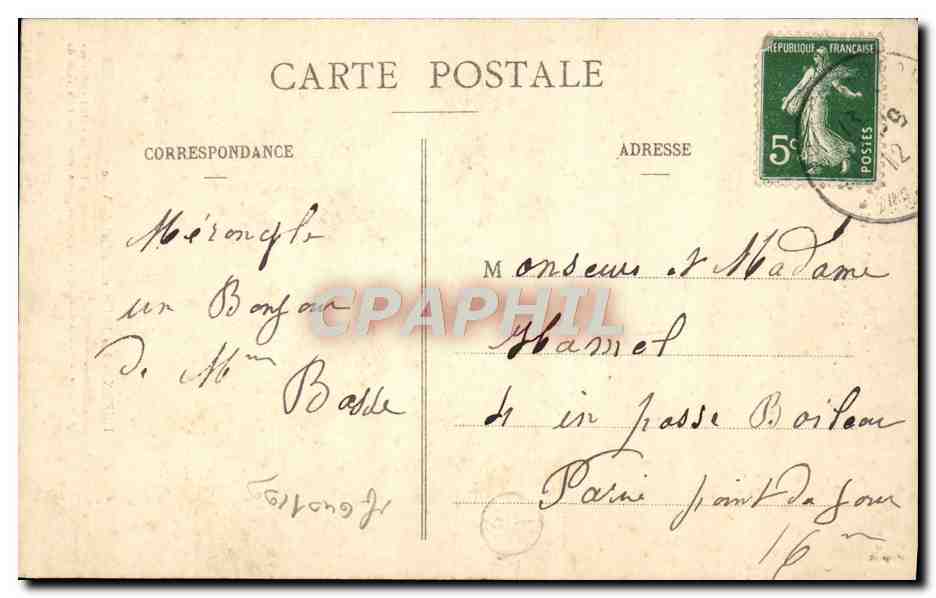 CARTE POSTALE
REPUBLIQUE FRANÇAISE
5c
POSTES
12
CORRESPONDANCE
ADRESSE
un Bonjour
de Mme
Basse
Monsieur et Madame
Hamel
4 in passe Boileau
Paris point du jour
16 m
CPAPHIL